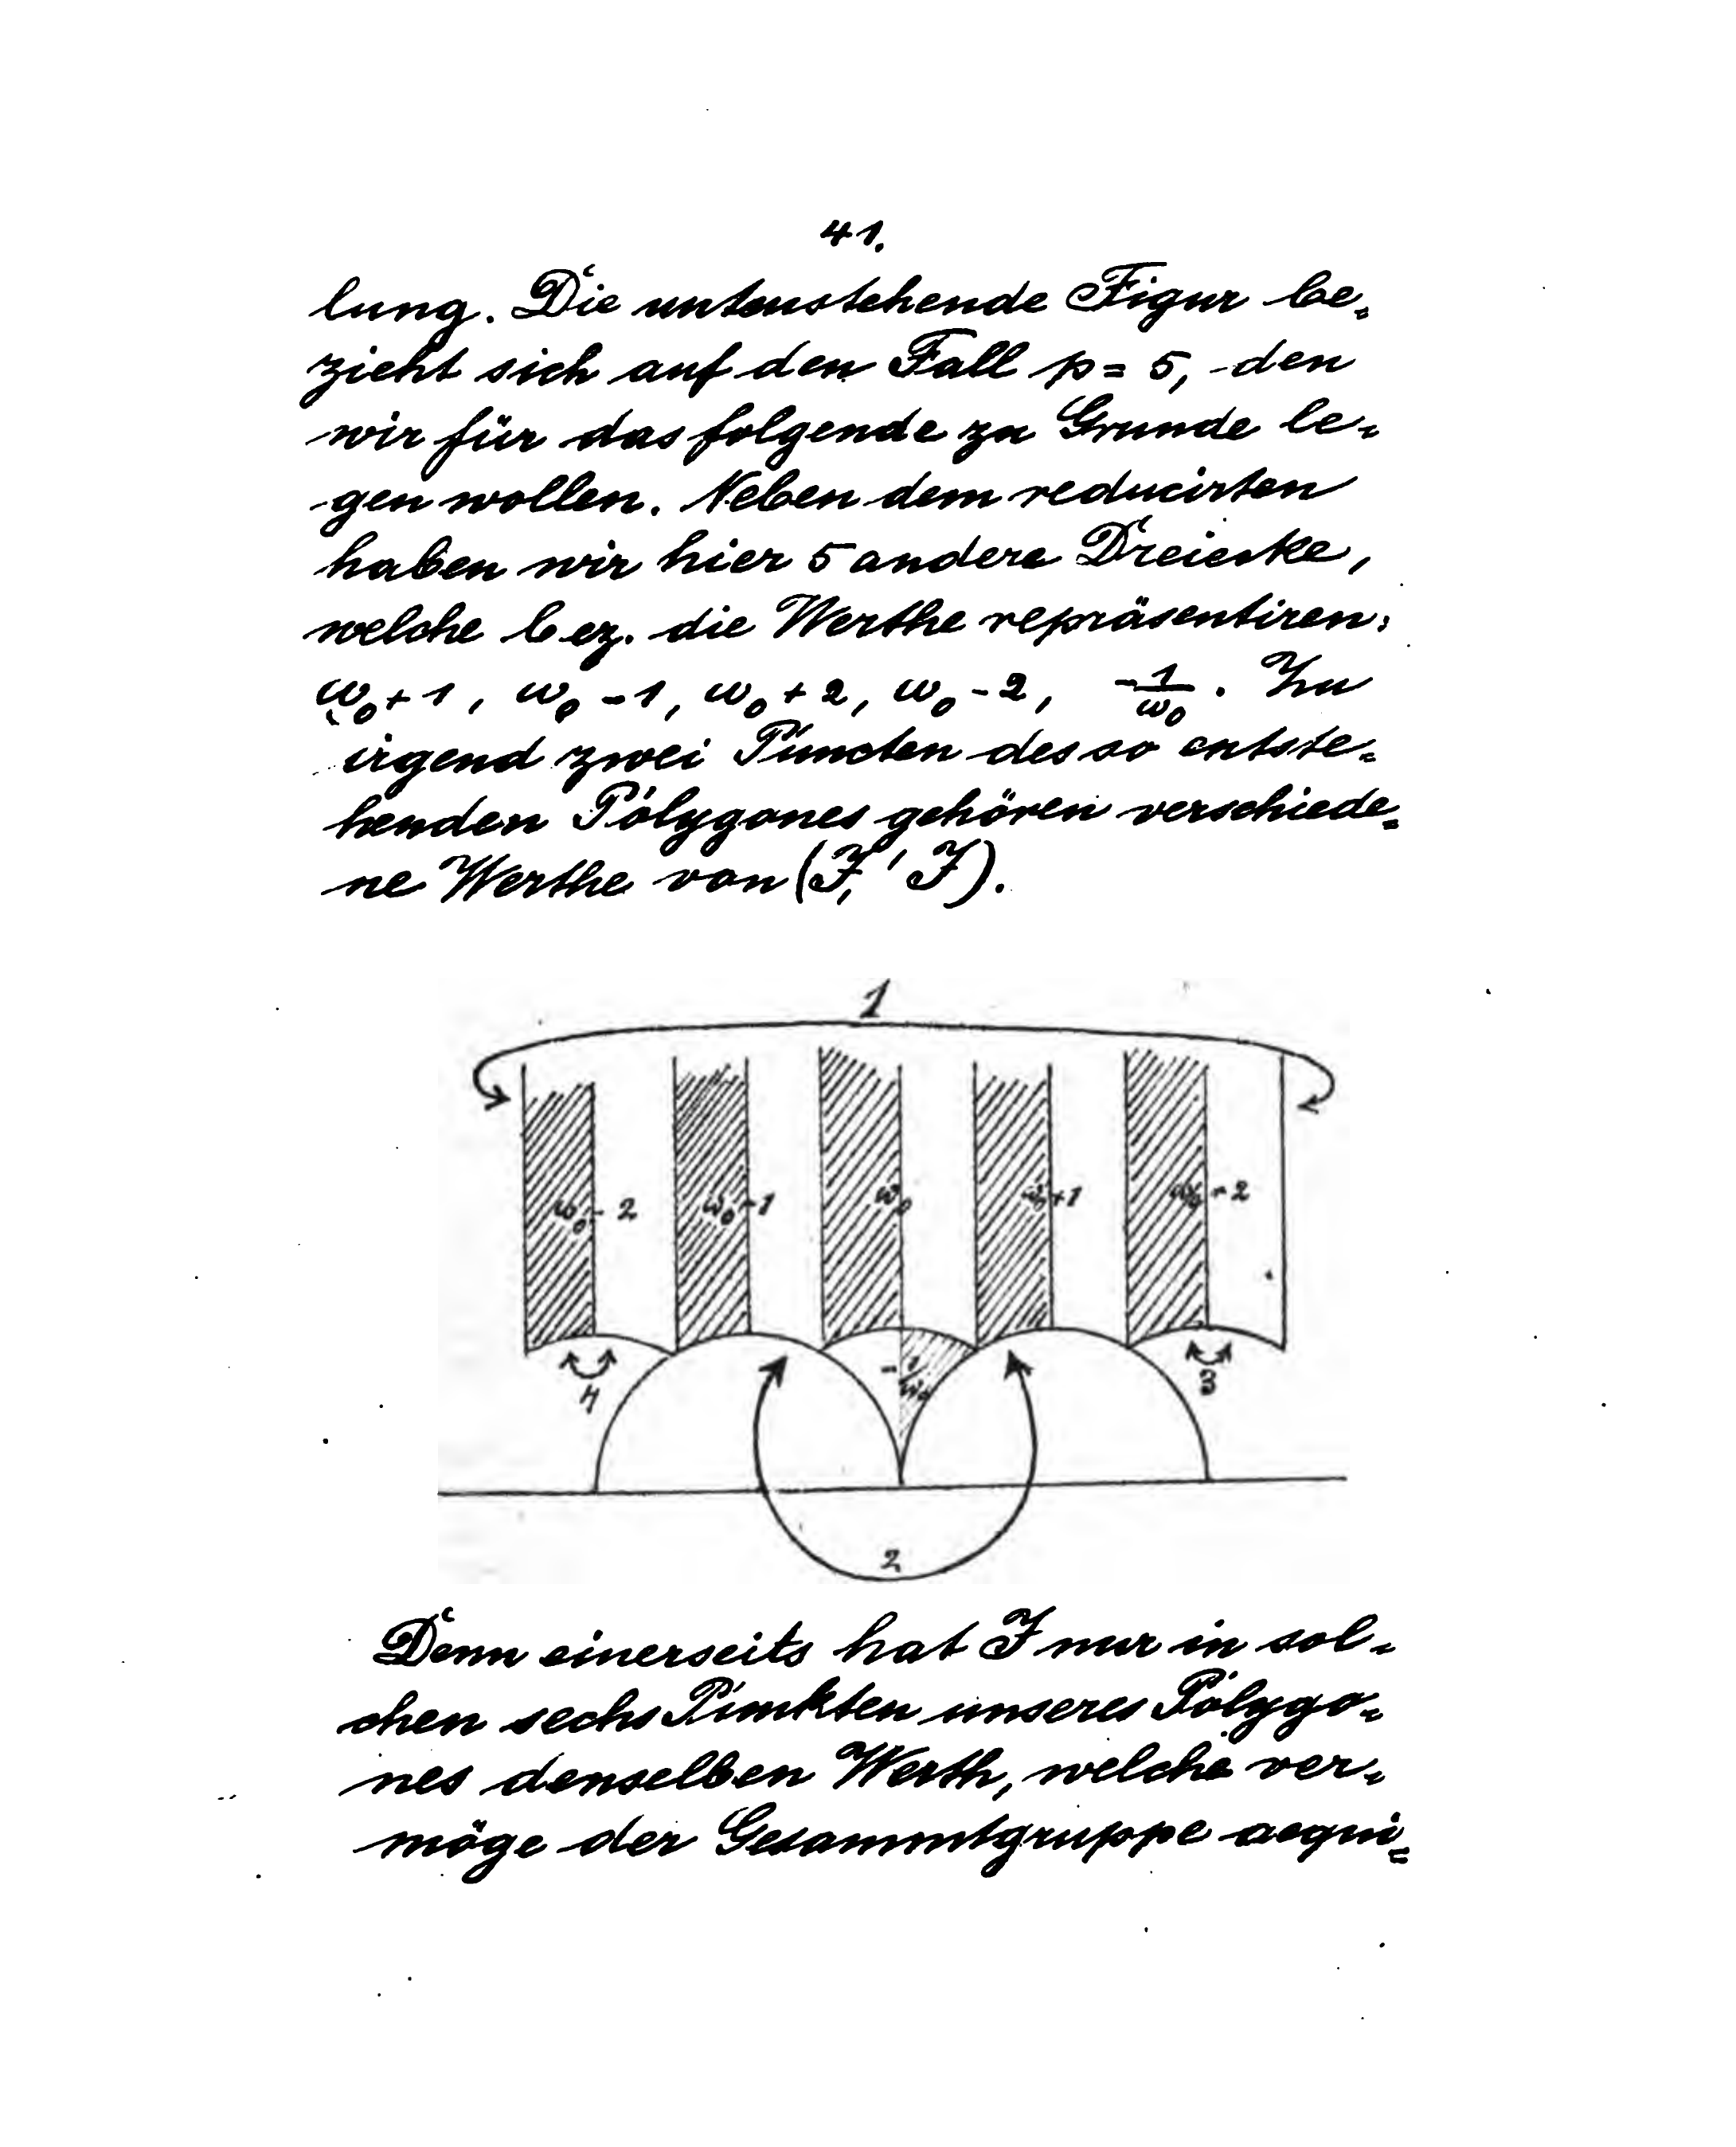 41.
lung. Die untenstehende Figur be-
zieht sich auf den Fall p = 5, den
wir für das folgende zu Grunde le-
gen wollen. Neben dem reducirten
haben wir hier 5 andere Dreiecke,
welche bez. die Werthe repräsentiren:
ω₀+1, ω₀-1, ω₀+2, ω₀-2, -1/ω₀. Zu
irgend zwei Puncten des so entste-
henden Polygones gehören verschiede-
ne Werthe von (J, J').
1
ω₀-2 ω₀-1 ω₀ ω₀+1 ω₀+2
-1/ω₀
4 3
2
Denn einerseits hat J nur in sol-
chen sechs Punkten unseres Polygo-
nes denselben Werth, welche ver-
möge der Gesammtgruppe aequi-